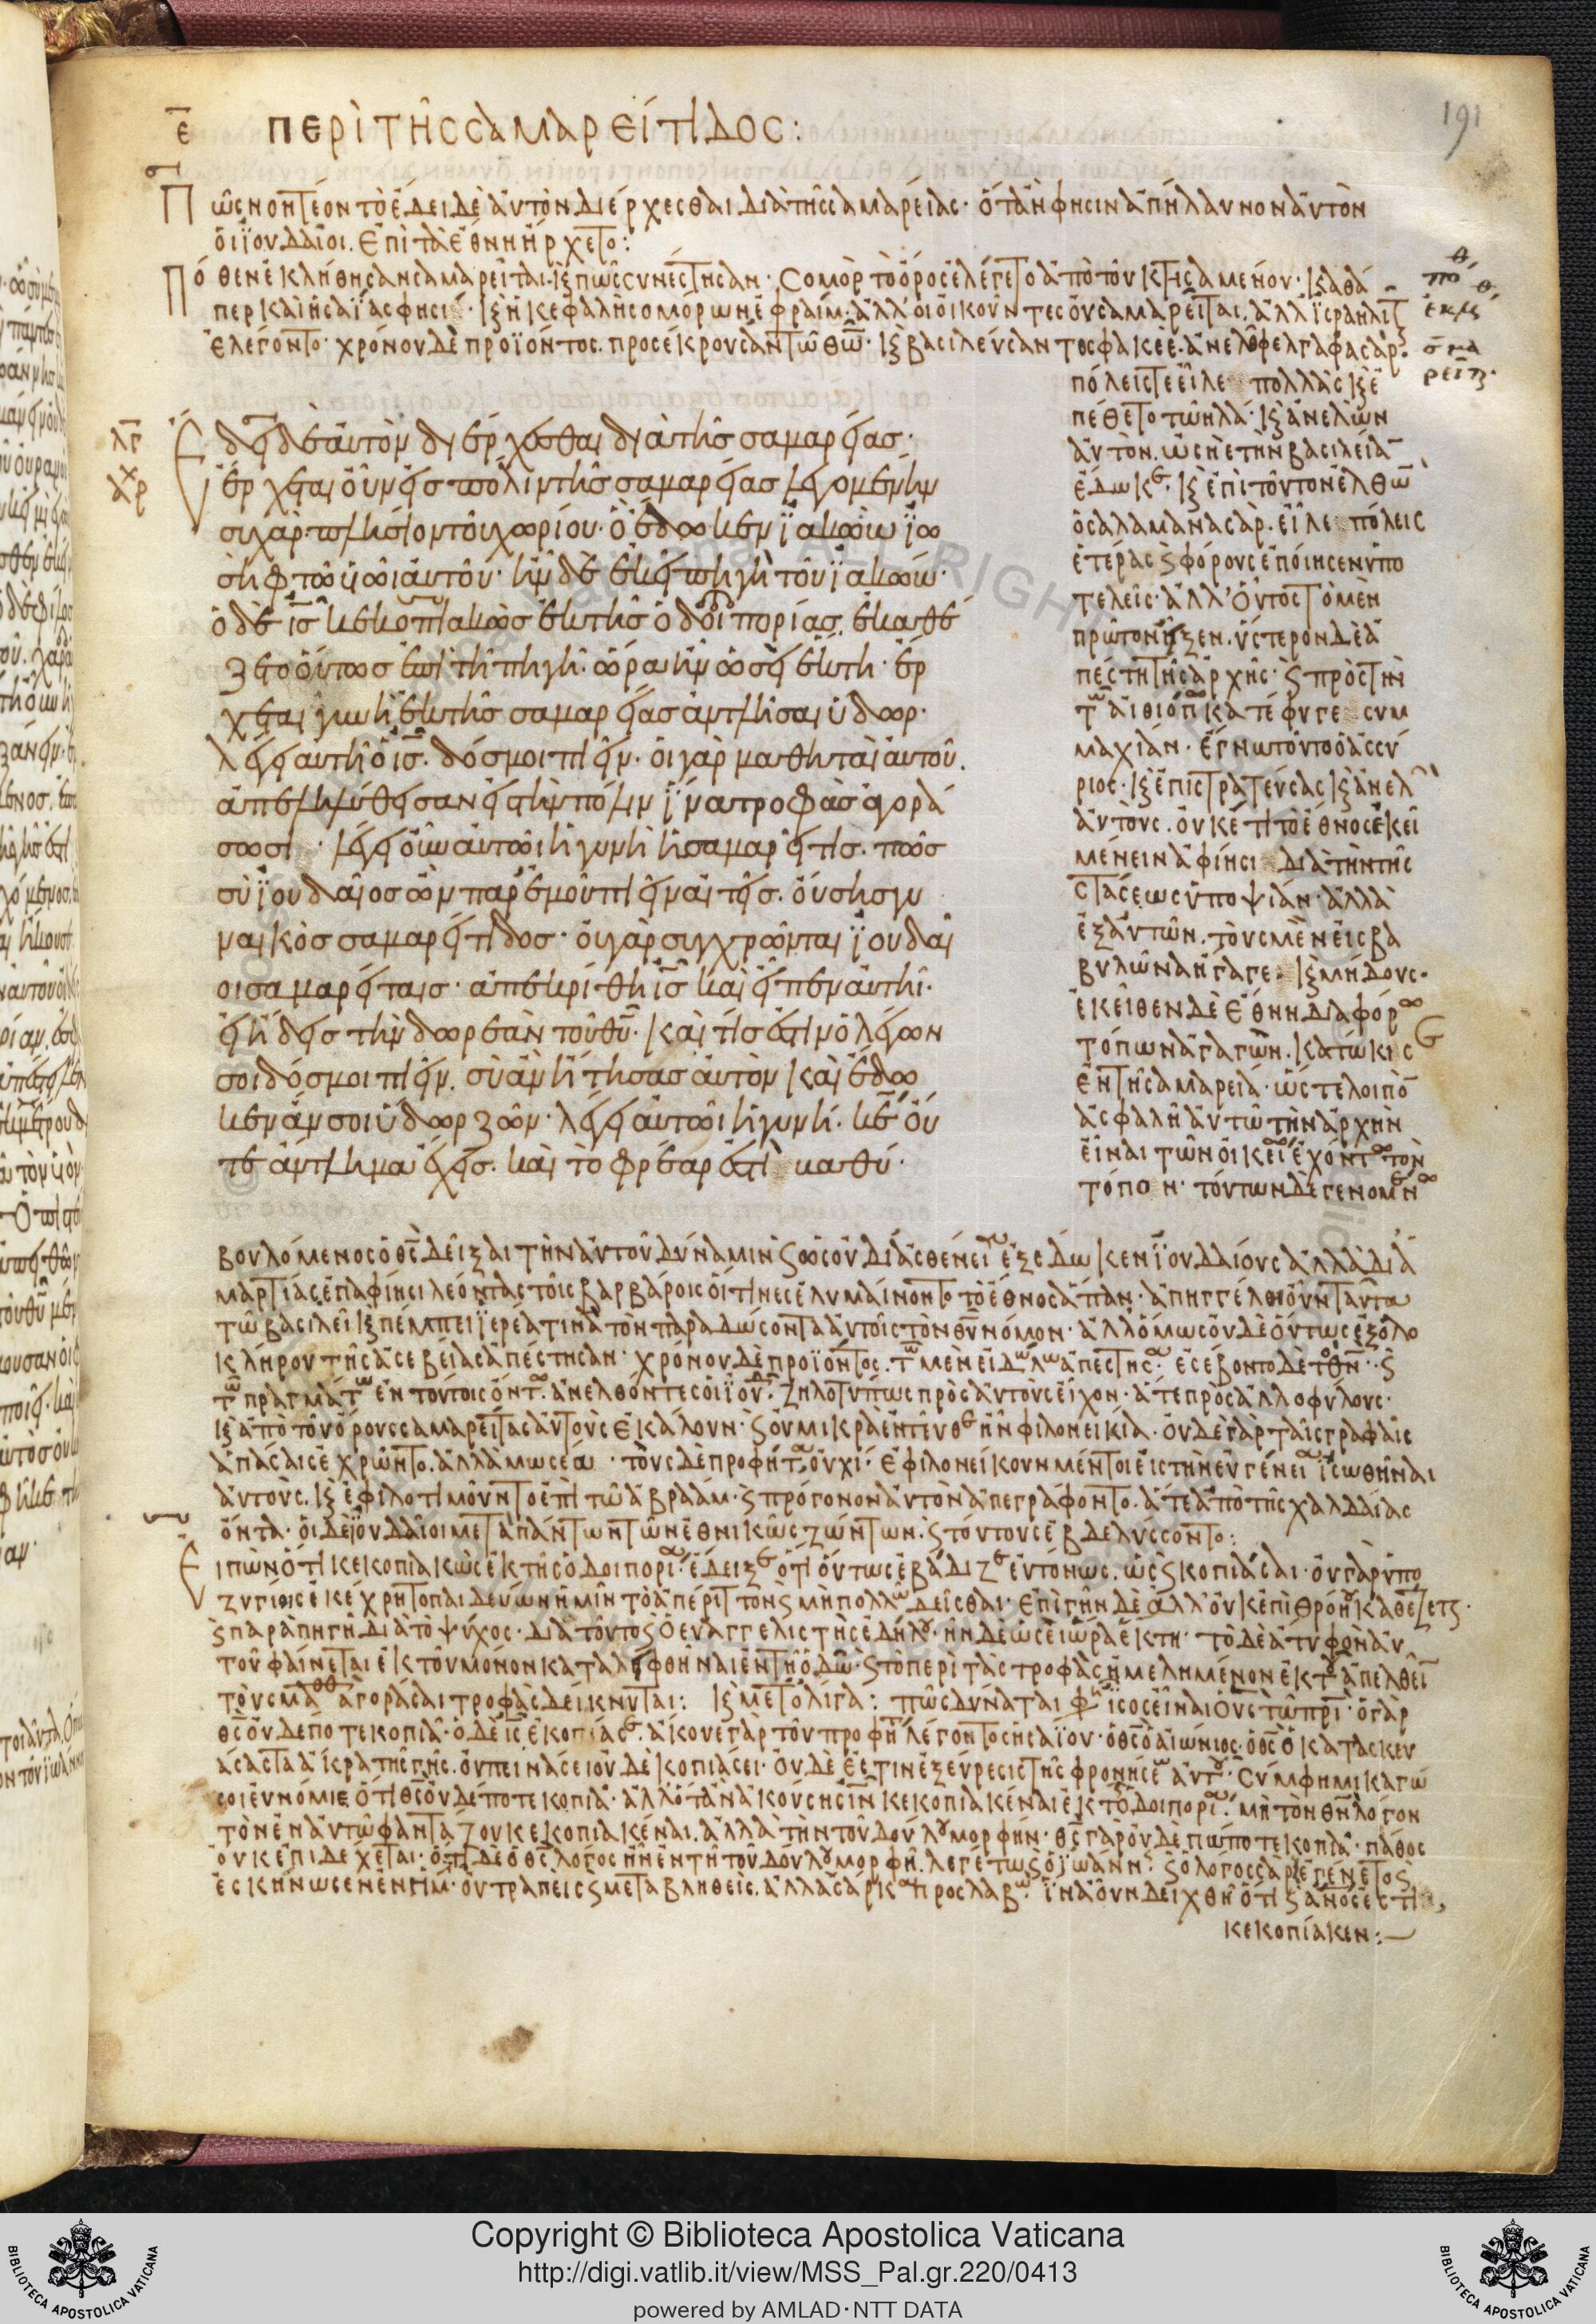 191
ε̅ περὶ τῆς σαμαρείτιδος:
Πῶς νοητέον τὸ ἔδει δὲ ἀυτὸν διέρχεσθαι διὰ τῆς σαμαρείας· ὅταν φησιν ἀπήλαυνον ἀυτὸν
ὁι ϊουδαῖοι. ἐπὶ τὰ ἔθνη ἤρχετο:
Πόθεν ἐκλήθησαν σαμαρεῖται. κ πῶς συνέστησαν· Σομὸρ τὸ ὄρος ἐλέγετο ἀπὸ τοῦ κτησαμένου· καθά
περ καὶ ἡσαΐας φησι· κ ἡ κεφαλὴ σομόρων ἐφραίμ· ἀλλ' ὁι ὀικοῦντες ὀυ σαμαρεῖται. ἀλλ' ϊσραηλῖτ
ἐλέγοντο· χρόνου δὲ προϊόντος. προσέκρουσαν τῶ θω̅· κ βασιλεύσαντος φακεὲ. ἀνελθ
πόλεις τε εἷλε πολλὰς κ ἐ
πέθετο τῶ ηλά· κ ἀνελὼν
ἀυτὸν. ὡσηὲ τὴν βασιλεία
ἔδωκε· κ ἐπὶ τοῦτον ἐλθὼ
ὁ σαλαμανασὰρ. εἷλε πόλεις
ἑτέρας κ φόρους ἐποίησεν ὑπο
τελεῖς· ἀλλ' οὗτος τὸ μὲν
πρῶτον ἦξεν. ὕστερον δὲ ἀ
πέστη τῆς ἀρχῆς· κ πρὸς τὴν
τῶν ἀιθιόπων κατέφυγε συμ
μαχίαν· ἔγνω τοῦτο ὁ ἀσσύ
ριος· κ ἐπιστρατεύσας κ ἀνελ
ἀυτοὺς. ὀυκέτι τὸ ἔθνος ἐκεῖ
μένειν ἀφίησι διὰ τὴν τῆς
στάσεως ὑποψίαν· ἀλλὰ
ἐξ ἀυτῶν. τοὺς μὲν ἐις βα
βυλῶνα ἤγαγε. κ μήδους·
ἐκεῖθεν δὲ ἔθνη διαφόρων
τόπων ἀγαγὼν. κατώκισε
ἐν τῆ σαμαρεία· ὥστε λοιπὸ
ἀσφαλῆ ἀυτῶ τὴν ἀρχὴν
εἶναι τῶν ὀικείων ἐχόντων τὸν
τόπον· τούτων δὲ γενομένων
λγ
Ἔδει δὲ ἀυτὸν διέρχεσθαι διὰ τῆς σαμαρείας·
ἔρχεται οὖν εἰς πόλιν τῆς σαμαρείας λεγομένην
σιχὰρ· πλησίον τοῦ χωρίου· ὃ ἔδωκεν ϊακὼβ ϊω
σὴφ τῶι υἱῶι ἀυτοῦ· ἦν δὲ ἐκεῖ πηγὴ τοῦ ϊακώβ·
ὁ δὲ ι̅σ̅ κεκοπιακὼς ἐκ τῆς ὁδοιπορίας. ἐκαθέ
ζετο οὕτως ἐπὶ τῆ πηγῆ. ὥρα ἦν ὡσεὶ ἕκτη· ἔρ
χεται γυνὴ ἐκ τῆς σαμαρείας ἀντλῆσαι ὕδωρ·
λέγει ἀυτῆ ὁ ι̅σ̅. δός μοι πιεῖν· ὁι γὰρ μαθηταὶ ἀυτοῦ.
ἀπεληλύθεισαν εἰς τὴν πόλιν ἵνα τροφὰς ἀγορά
σωσι· λέγει οὖν ἀυτῶι ἡ γυνὴ ἡ σαμαρεῖτις. πῶς
σὺ ϊουδαῖος ὢν παρ' ἐμοῦ πιεῖν αἰτεῖς. οὔσης γυ
ναικὸς σαμαρείτιδος· ὀυ γὰρ συγχρῶνται ϊουδαῖ
οι σαμαρείταις· ἀπεκρίθη ι̅σ̅ καὶ εἶπεν ἀυτῆι·
εἰ ἤδεις τὴν δωρεὰν τοῦ θυ̅· καὶ τίς ἐστιν ὁ λέγων
σοι δός μοι πιεῖν. σὺ ἂν ἤτησας ἀυτὸν καὶ ἔδω
κεν ἄν σοι ὕδωρ ζῶν· λέγει ἀυτῶι ἡ γυνὴ. κ̅ε̅ οὔ
τε ἄντλημα ἔχεις. καὶ τὸ φρέαρ ἐστὶ βαθύ·
βουλόμενος ὁ θσ̅ δεῖξαι τὴν ἀυτοῦ δύναμιν κ ὡς ὀυ δι' ἀσθένειαν ἐξέδωκεν ϊουδαίους ἀλλὰ δι' ἁ
μαρτίας ἐπαφίησι λέοντας τοῖς βαρβάροις ὁίτινες ἐλυμαίνοντο τὸ ἔθνος ἅπαν· ἀπηγγέλθη οὖν ταῦτα
τῶ βασιλεῖ κ πέμπει ϊερέα τινὰ τὸν παραδώσοντα ἀυτοῖς τὸν θυ̅ νόμον· ἀλλ' ὅμως ὀυδὲ οὕτως ἐξολο
κλήρου τῆς ἀσεβείας ἀπέστησαν· χρόνου δὲ προϊόντος. τῶν μὲν εἰδώλων ἀπέστησαν· ἐσέβοντο δὲ τὸν θν̅· κ
τῶν πραγμάτων ἐν τούτοις ὄντων. ἀνελθόντες ὁι ϊουδ. ζηλοτύπως πρὸς ἀυτοὺς εἶχον· ἅτε πρὸς ἀλλοφύλους·
κ ἀπὸ τοῦ ὄρους σαμαρείτας ἀυτοὺς ἐκάλουν· κ ὀυ μικρὰ ἐντεῦθεν ἦν φιλονεικία· ὀυδὲ γὰρ ταῖς γραφαῖς
ἁπάσαις ἐχρῶντο. ἀλλὰ μωσέως· τοὺς δὲ προφήτας ὀυχί· ἐφιλονείκουν μέντοι ἐις τὴν ἐυγένειαν ἰσωθῆναι
ἀυτοὺς. κ ἐφιλοτιμοῦντο ἐπὶ τῶ ἀβραάμ· κ πρόγονον ἀυτὸν ἀπεγράφοντο. ἅτε ἀπὸ τῆς χαλδαίας
ὄντα· ὁι δὲ ϊουδαῖοι μετὰ πάντων τῶν ἐθνικῶς ζώντων. κ τούτους ἐβδελύσσοντο:
Ἐιπὼν ὅτι κεκοπιακὼς ἐκ τῆς ὁδοιπορίας· ἔδειξεν ὅτι οὕτως ἐβάδιζεν ἐυτόνως. ὡς κ κοπιάσαι· ὀυ γὰρ ὑπο
ζυγίοις ἐκέχρητο παιδεύων ἡμῖν τὸ ἀπέριττον κ μὴ πολλῶν δεῖσθαι· ἐπὶ γῆν δὲ ἀλλ' ὀυκ ἐπὶ θρόνου καθέζεται·
κ παρὰ πηγὴν διὰ τὸ ψύχος· διὰ τοῦτο κ ὁ ἐυαγγελιστὴς ἐδήλου· ἦν δὲ ὡσεὶ ὥρα ἕκτη· τὸ δὲ ἄτυφον ἀυ
τοῦ φαίνεται ἐκ τοῦ μόνον καταληφθῆναι ἐν τῆ ὁδῶ· κ τὸ περὶ τὰς τροφὰς ἠμελημένον ἐκ τοῦ ἀπελθεῖν
τοὺς μαθ ἀγοράσαι τροφὰς δείκνυται: κ μετ' ὀλίγα: πῶς δύναται φ ἴσος εἶναι ὁ υσ̅ τῶ πρι̅· ὁ γὰρ
θσ̅ ὀυδέποτε κοπιᾶ· ὁ δὲ ισ̅ ἐκοπίασε· ἄκουε γὰρ τοῦ προφη λέγοντος ἡσαΐου· ὁ θσ̅ ὁ αἰώνιος· ὁ θσ̅ ὁ κατασκευ
άσας τὰ ἄκρα τῆς γῆς. ὀυ πεινάσει ὀυδὲ κοπιάσει· ὀυδὲ ἔστιν ἐξεύρεσις τῆς φρονήσεως ἀυτοῦ· Σύμφημι κἀγώ
σοι ἐυνόμιε ὅτι θσ̅ ὀυδέποτε κοπιᾶ· ἀλλ' ὅταν ἀκούσης ιν̅ κεκοπιακέναι ἐκ τῆς ὁδοιπορίας· μὴ τὸν θν̅ λόγον
τὸν ἐν ἀυτῶ φαντάζου κεκοπιακέναι. ἀλλὰ τὴν τοῦ δούλου μορφήν· θσ̅ γὰρ ὀυδὲ πώποτε κοπιᾶ· πάθος
ὀυκ ἐπιδέχεται· ὅτι δὲ ὁ θσ̅ λόγος ἦν ἐν τῆ τοῦ δούλου μορφῆ. λεγέτω κ ὁ ϊωάννης· κ ὁ λόγος σὰρξ ἐγένετο κ
ἐσκήνωσεν ἐν ἡμῖν· ὀυ τραπεὶς κ μεταβληθεὶς. ἀλλὰ σάρκα προσλαβὼν· ἵνα οὖν δειχθῆ ὅτι κ ἄνοσ̅ ἐστὶ
κεκοπίακεν:
Copyright © Biblioteca Apostolica Vaticana
http://digi.vatlib.it/view/MSS_Pal.gr.220/0413
powered by AMLAD·NTT DATA
BIBLIOTECA APOSTOLICA VATICANA
BIBLIOTECA APOSTOLICA VATICANA